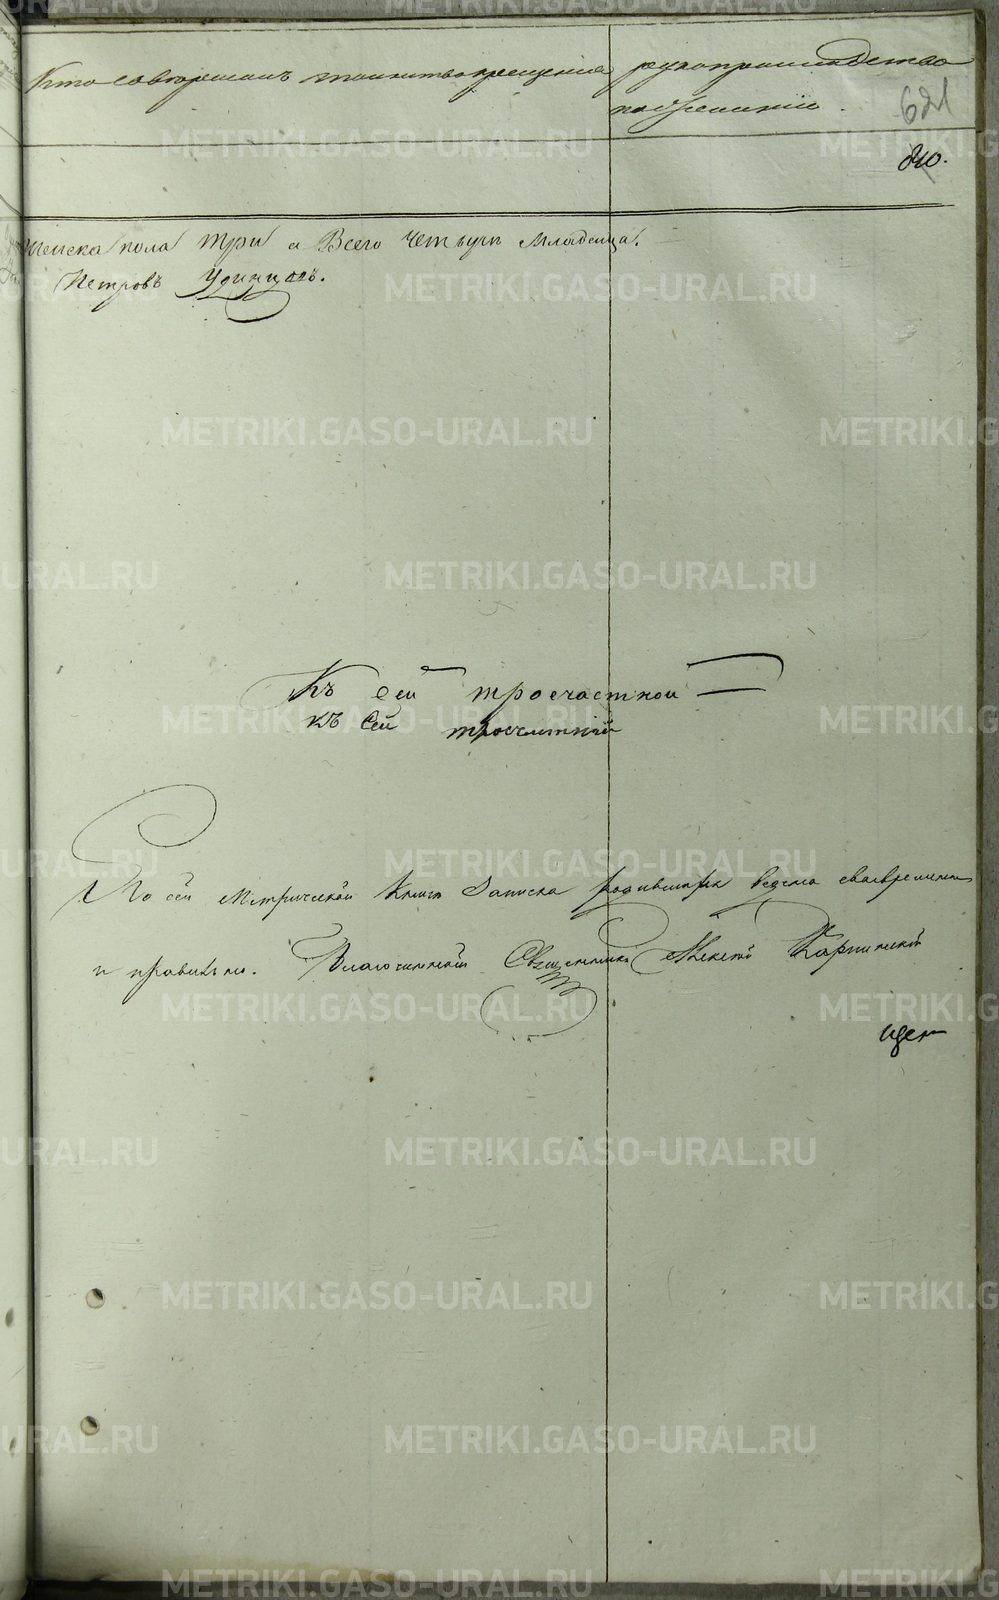 Кто совершалъ таинство крещенія рукоприкладство
по желанію.
621
840.
женска пола три а Всего Четыри Младенца.
Петровъ Удинцовъ.
Къ сей троечастной
къ Сей троечастной
По сей Метрической Книги Записка родившихся ведена своевременно
и правильно. Благочинный Священникъ Алексей Карпинский
METRIKI.GASO-URAL.RU